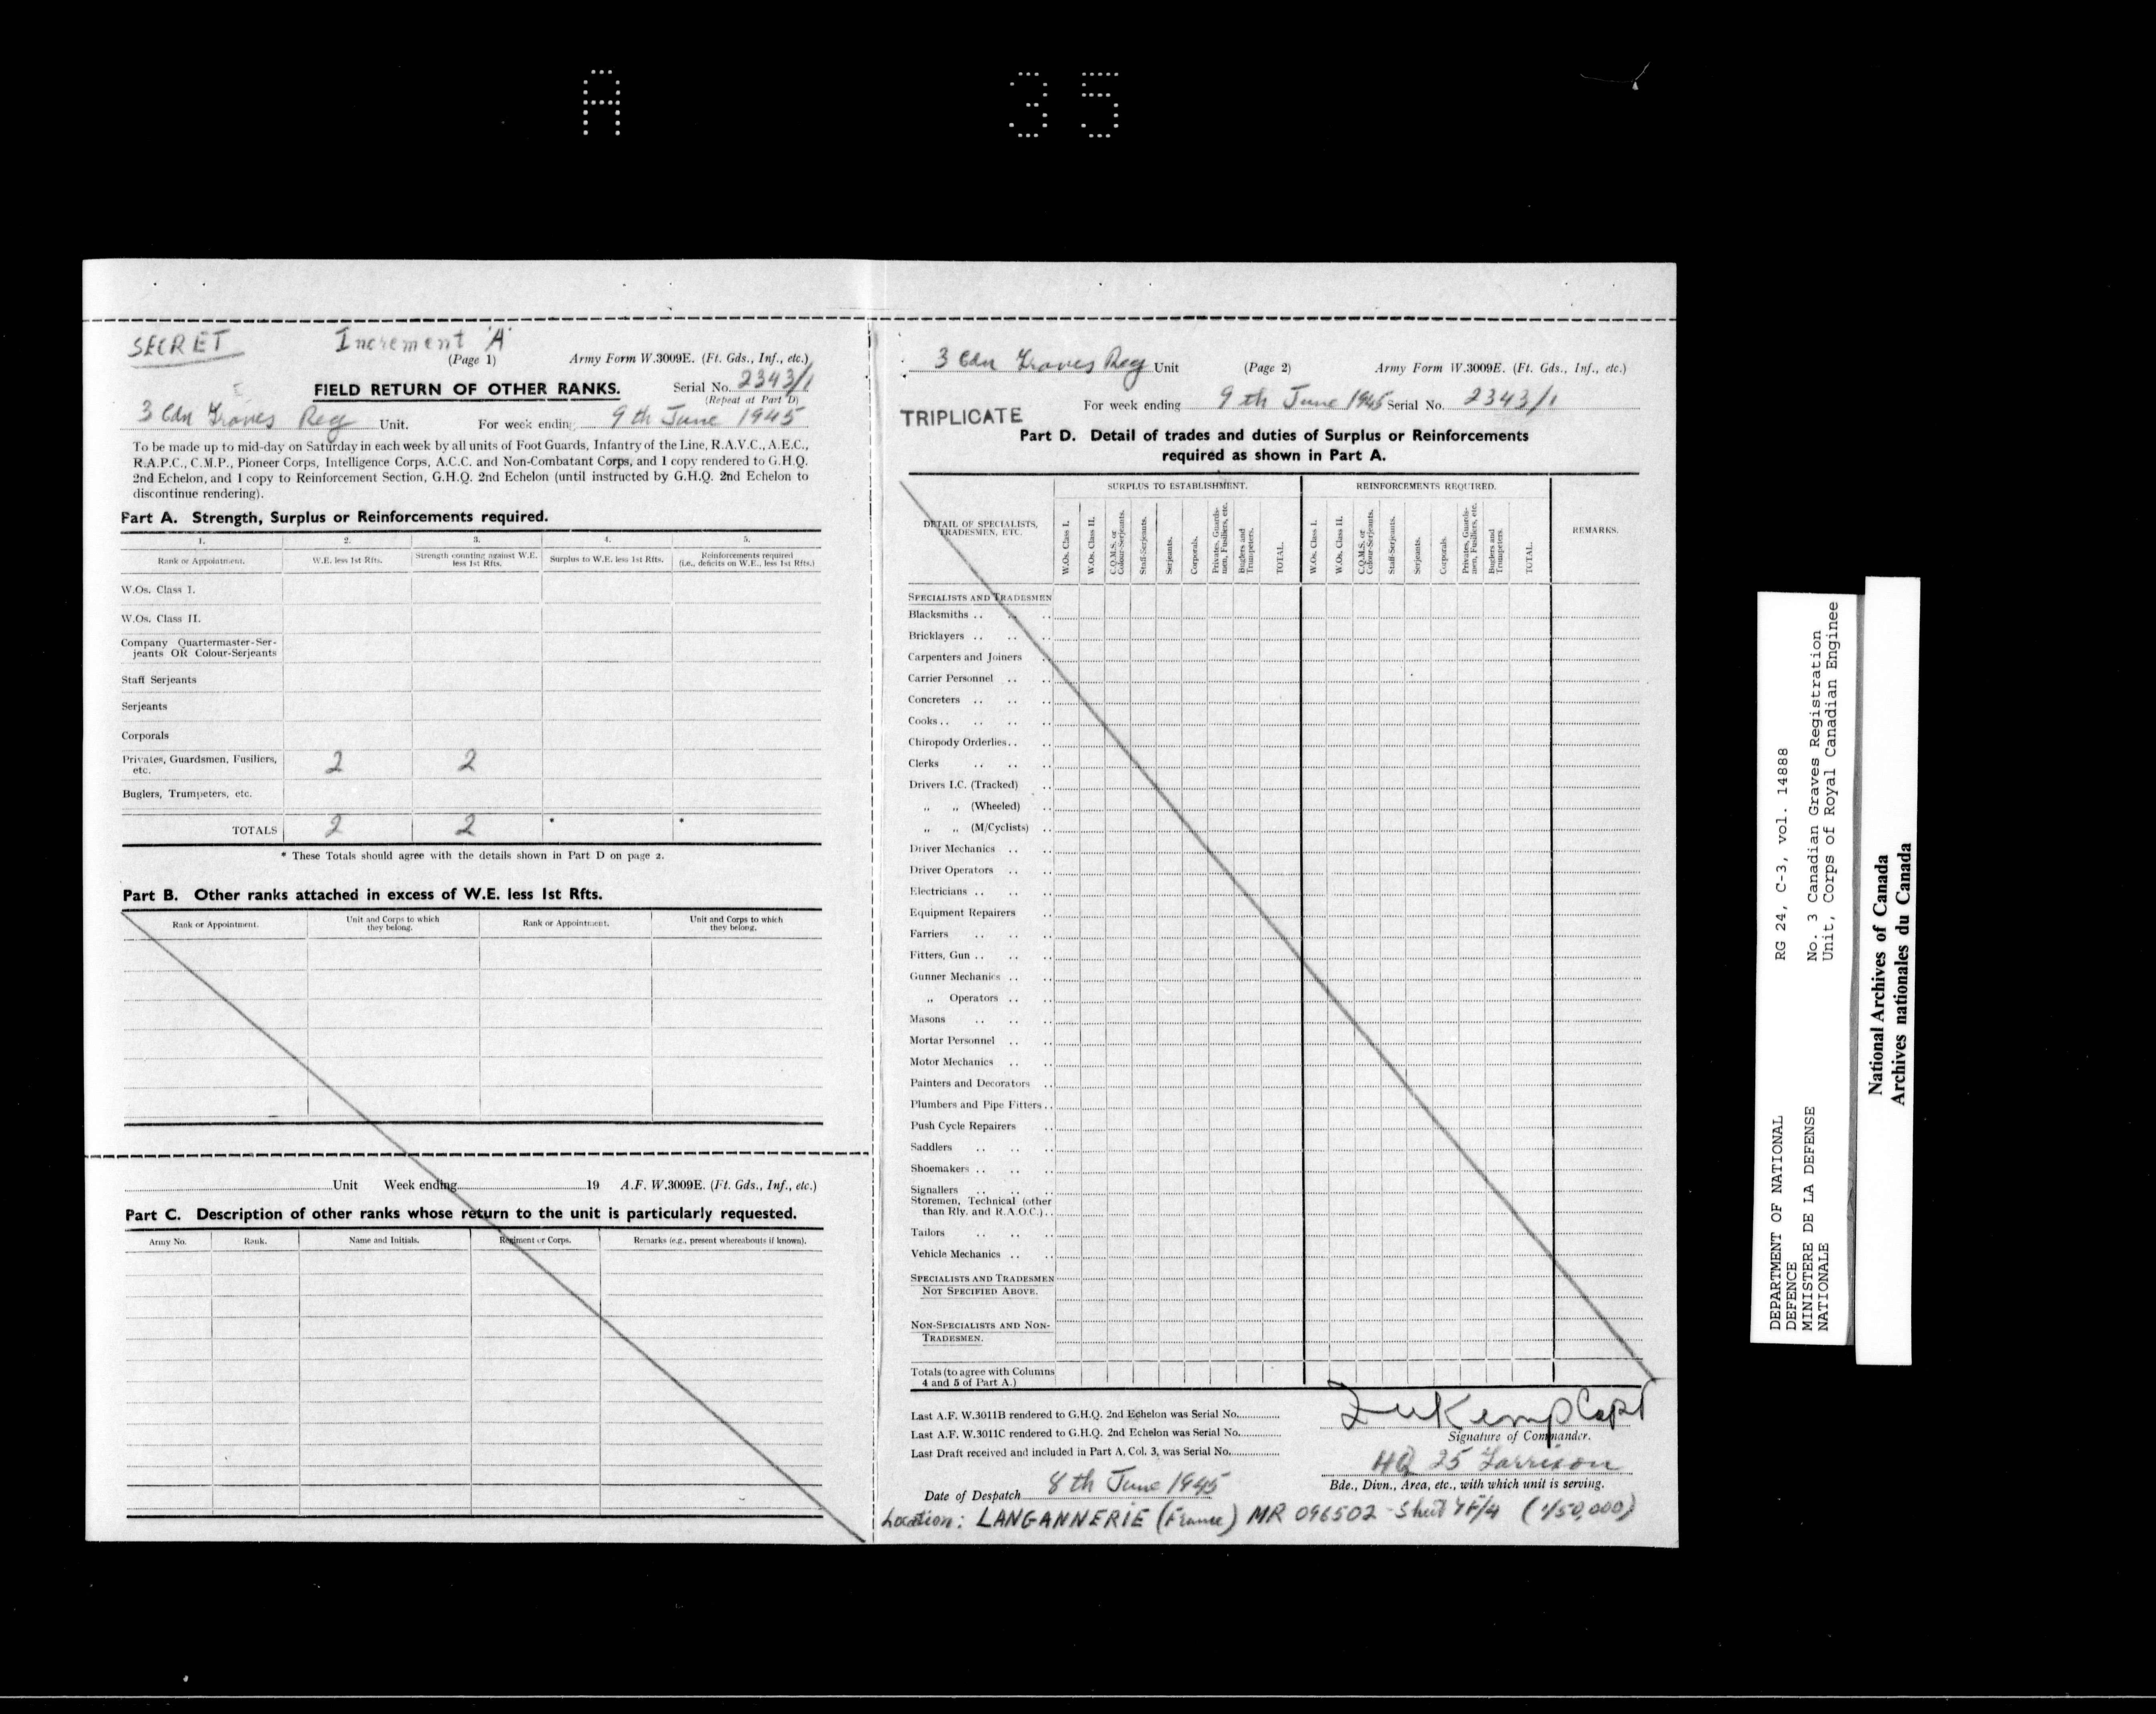 A 35
SECRET Increment 'A'
(Page 1) Army Form W.3009E. (Ft. Gds., Inf., etc.)
FIELD RETURN OF OTHER RANKS. Serial No. 2343/1
(Repeat at Part D)
3 Cdn Graves Reg Unit. For week ending 9th June 1945
To be made up to mid-day on Saturday in each week by all units of Foot Guards, Infantry of the Line, R.A.V.C., A.E.C.,
R.A.P.C., C.M.P., Pioneer Corps, Intelligence Corps, A.C.C. and Non-Combatant Corps, and 1 copy rendered to G.H.Q.
2nd Echelon, and 1 copy to Reinforcement Section, G.H.Q. 2nd Echelon (until instructed by G.H.Q. 2nd Echelon to
discontinue rendering).
Part A. Strength, Surplus or Reinforcements required.
1. 2. 3. 4. 5.
Rank or Appointment. W.E. less 1st Rfts. Strength counting against W.E. less 1st Rfts. Surplus to W.E. less 1st Rfts. Reinforcements required (i.e., deficits on W.E., less 1st Rfts.)
W.Os. Class I.
W.Os. Class II.
Company Quartermaster-Ser-
jeants OR Colour-Serjeants
Staff Serjeants
Serjeants
Corporals
Privates, Guardsmen, Fusiliers, etc. 2 2
Buglers, Trumpeters, etc.
TOTALS 2 2 * *
* These Totals should agree with the details shown in Part D on page 2.
Part B. Other ranks attached in excess of W.E. less 1st Rfts.
Rank or Appointment. Unit and Corps to which they belong. Rank or Appointment. Unit and Corps to which they belong.
Unit Week ending 19 A.F. W.3009E. (Ft. Gds., Inf., etc.)
Part C. Description of other ranks whose return to the unit is particularly requested.
Army No. Rank. Name and Initials. Regiment or Corps. Remarks (e.g., present whereabouts if known).
3 Cdn Graves Reg Unit (Page 2) Army Form W.3009E. (Ft. Gds., Inf., etc.)
For week ending 9th June 1945 Serial No. 2343/1
TRIPLICATE
Part D. Detail of trades and duties of Surplus or Reinforcements
required as shown in Part A.
SURPLUS TO ESTABLISHMENT. REINFORCEMENTS REQUIRED.
DETAIL OF SPECIALISTS, TRADESMEN, ETC. W.Os. Class I. W.Os. Class II. C.Q.M.S. or Colour-Serjeants. Staff-Serjeants. Serjeants. Corporals. Privates, Guardsmen, Fusiliers, etc. Buglers and Trumpeters. TOTAL. W.Os. Class I. W.Os. Class II. C.Q.M.S. or Colour-Serjeants. Staff-Serjeants. Serjeants. Corporals. Privates, Guardsmen, Fusiliers, etc. Buglers and Trumpeters. TOTAL. REMARKS.
SPECIALISTS AND TRADESMEN
Blacksmiths
Bricklayers
Carpenters and Joiners
Carrier Personnel
Concreters
Cooks
Chiropody Orderlies
Clerks
Drivers I.C. (Tracked)
,, ,, (Wheeled)
,, ,, (M/Cyclists)
Driver Mechanics
Driver Operators
Electricians
Equipment Repairers
Farriers
Fitters, Gun
Gunner Mechanics
,, Operators
Masons
Mortar Personnel
Motor Mechanics
Painters and Decorators
Plumbers and Pipe Fitters
Push Cycle Repairers
Saddlers
Shoemakers
Signallers
Storemen, Technical (other
than Rly. and R.A.O.C.)
Tailors
Vehicle Mechanics
SPECIALISTS AND TRADESMEN
NOT SPECIFIED ABOVE.
NON-SPECIALISTS AND NON-
TRADESMEN.
Totals (to agree with Columns
4 and 5 of Part A.)
Last A.F. W.3011B rendered to G.H.Q. 2nd Echelon was Serial No.
Last A.F. W.3011C rendered to G.H.Q. 2nd Echelon was Serial No.
Last Draft received and included in Part A, Col. 3, was Serial No.
Kemp Capt
Signature of Commander.
HQ 25 Garrison
Bde., Divn., Area, etc., with which unit is serving.
Date of Despatch 8th June 1945
Location: LANGANNERIE (France) MR 096502 - Sheet 7F/4 (1/50,000)
DEPARTMENT OF NATIONAL DEFENCE RG 24, C-3, vol. 14888
MINISTERE DE LA DEFENSE NATIONALE No. 3 Canadian Graves Registration
Unit, Corps of Royal Canadian Enginee
National Archives of Canada
Archives nationales du Canada